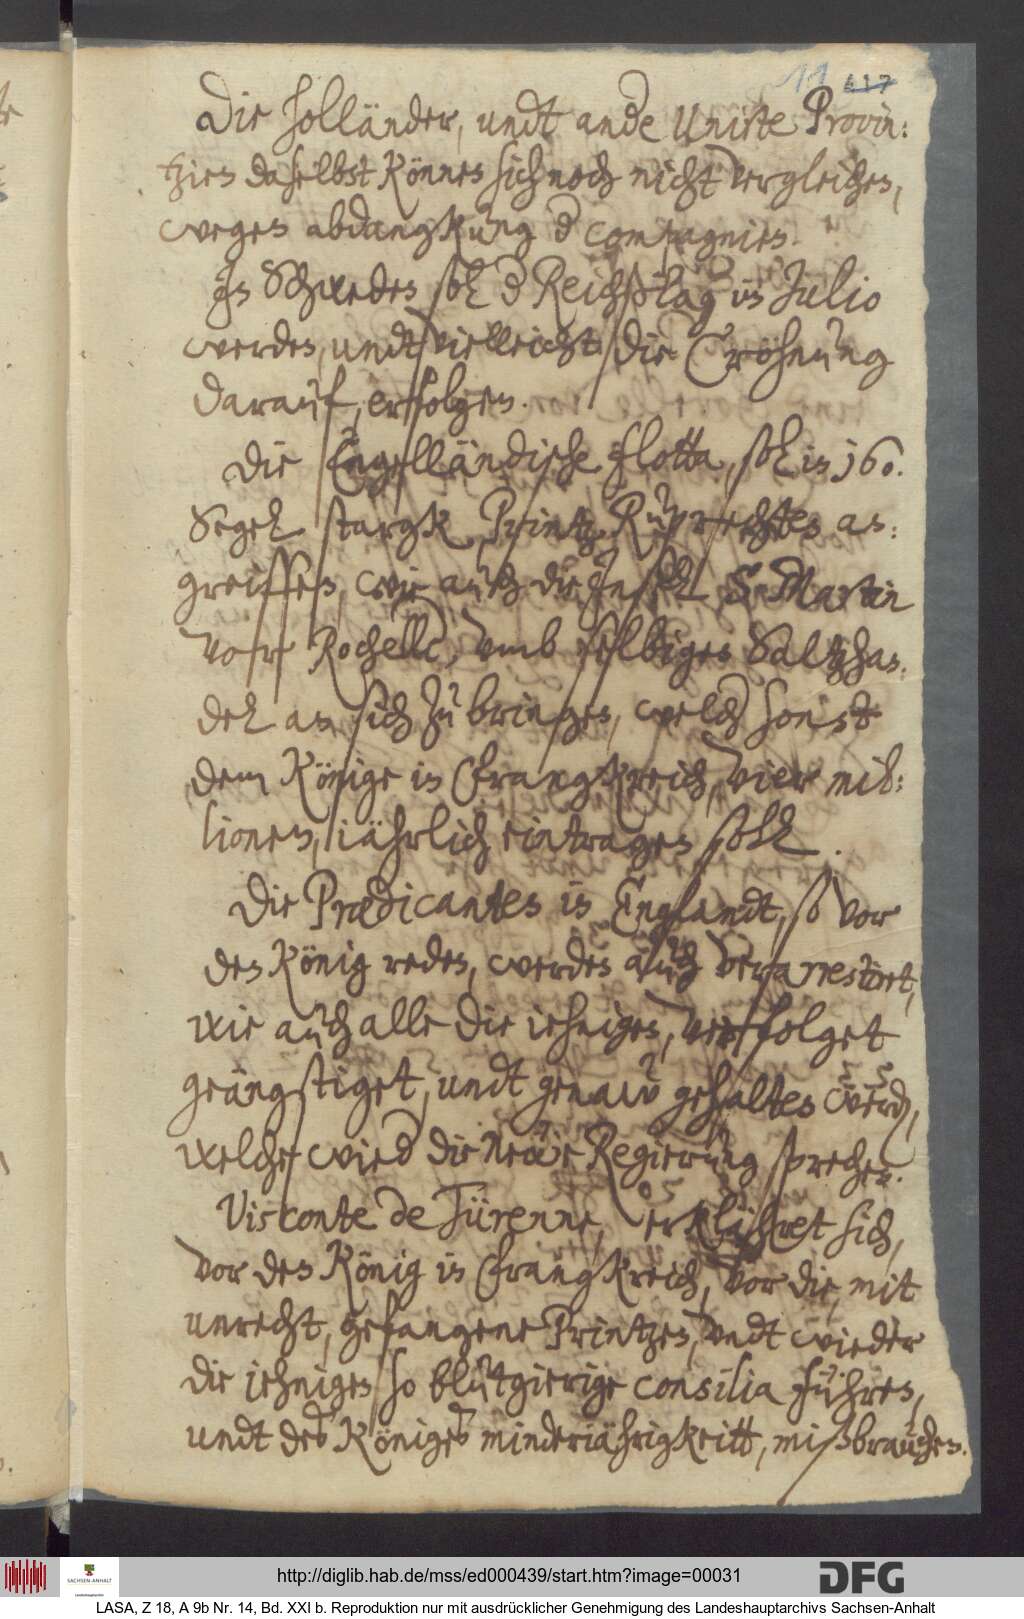 11 417
Die Holländer, undt andere Unirte Provin:
tzien daselbst können sich noch nicht vergleichen,
wegen abdangkung der compagnien.
In Schweden soll der Reichßtag in Julio
werden, undt vielleicht die Cröhnung
darauf, erfolgen.
Die Engelländische flotta, soll in 160.
Segel stargk, Printz Ruprechten an:
greiffen, wie auch die Insel S. Martin
vor Rochelle, umb selbigen Saltzhan:
del an sich zu bringen, welcher sonst
dem Könige in Frangkreich, vier mil:
lionen, iährlich eintragen soll.
Die Prædicanten in Englandt, so vor
den König reden, werden auch verarrestiret,
wie auch alle die iehnigen, verfolget
geängstiget, undt genaw gehalten werden,
welche wieder die Newe Regierung sprechen.
Visconte de Türenne, erklähret sich,
vor den König in Frangkreich, vor die, mit
unrecht, gefangene Printzen, undt wieder
die iehnigen so blutgierige consilia führen,
undt des Königes minderiährigkeitt, mißbrauchen.
http://diglib.hab.de/mss/ed000439/start.htm?image=00031
SACHSEN-ANHALT
Landeshauptarchiv
DFG
LASA, Z 18, A 9b Nr. 14, Bd. XXI b. Reproduktion nur mit ausdrücklicher Genehmigung des Landeshauptarchivs Sachsen-Anhalt